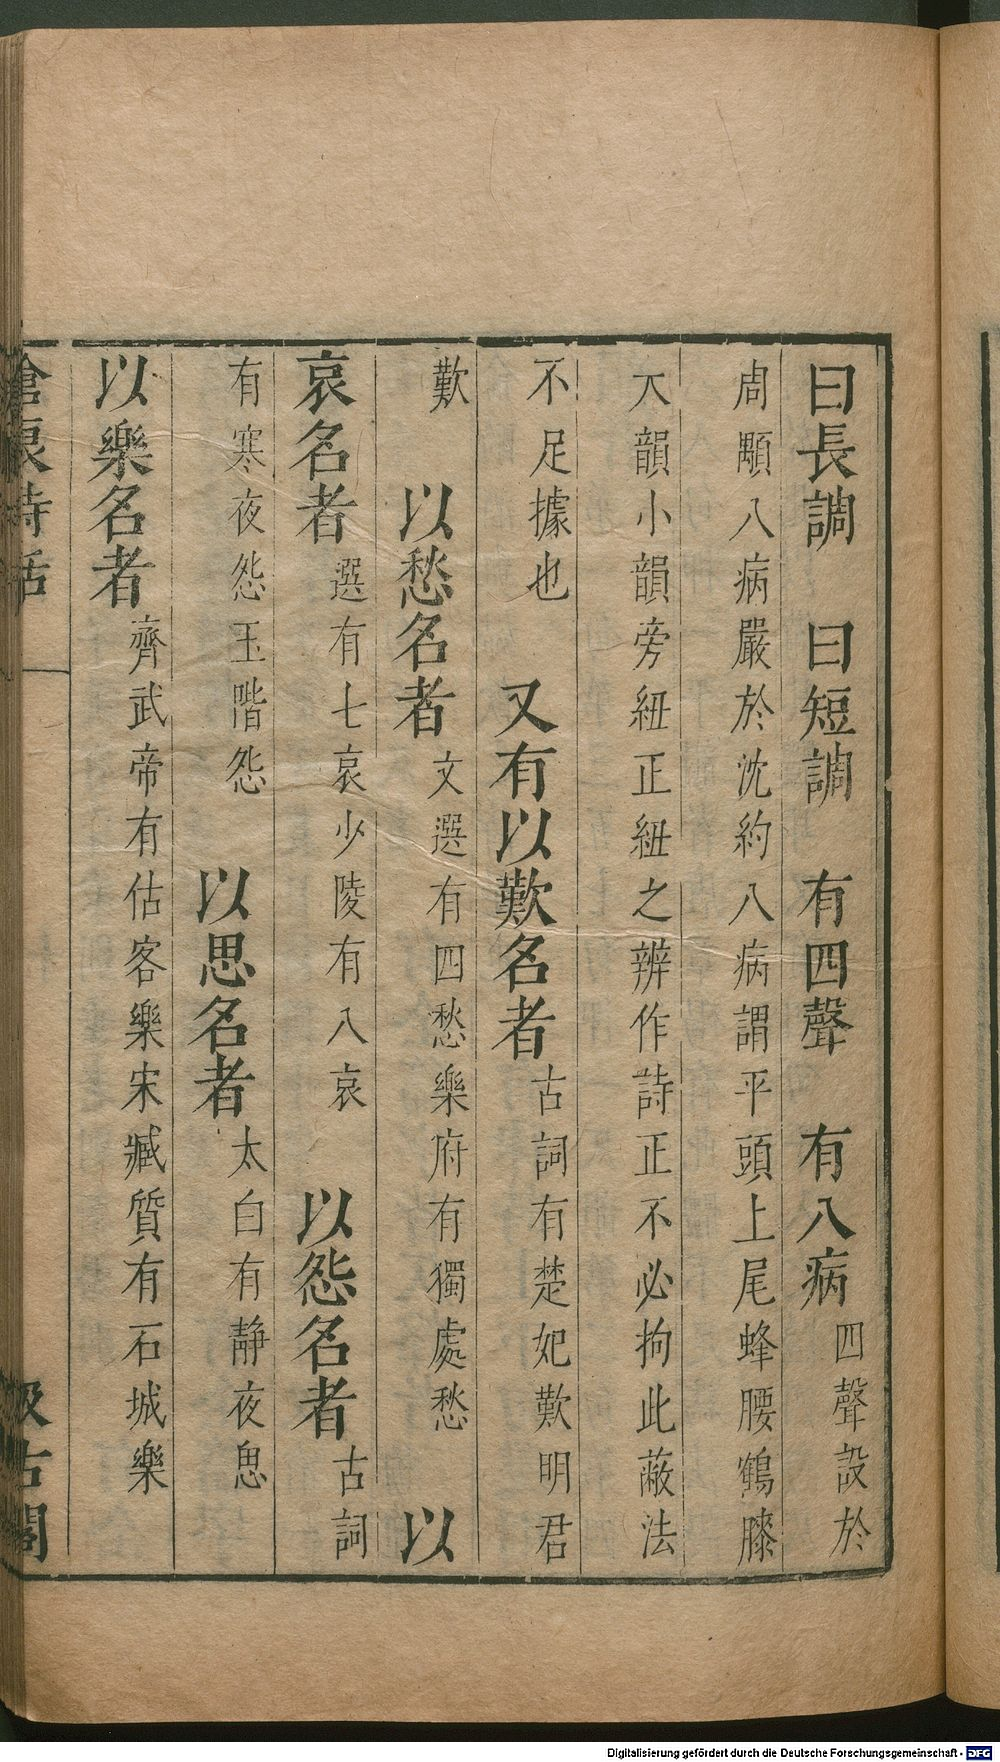 曰長調　曰短調　有四聲　有八病四聲設於
周顒八病嚴於沈約八病謂平頭上尾蜂腰鶴膝
大韻小韻旁紐正紐之辨作詩正不必拘此蔽法
不足據也　又有以歎名者古詞有楚妃歎明君
歎　以愁名者文選有四愁樂府有獨處愁　以
哀名者選有七哀少陵有八哀　以怨名者古詞
有寒夜怨玉階怨　以思名者太白有靜夜思
以樂名者齊武帝有估客樂宋臧質有石城樂
滄浪詩話
汲古閣
Digitalisierung gefördert durch die Deutsche Forschungsgemeinschaft - DFG